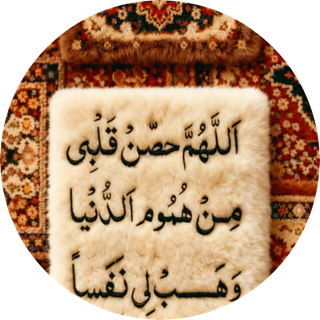 اَللَّهُمَّ حصّنْ قَلْبِى
مِنْ هُمُومِ اَلدُّنْيا
وَهَبْ لِى نَفَساً